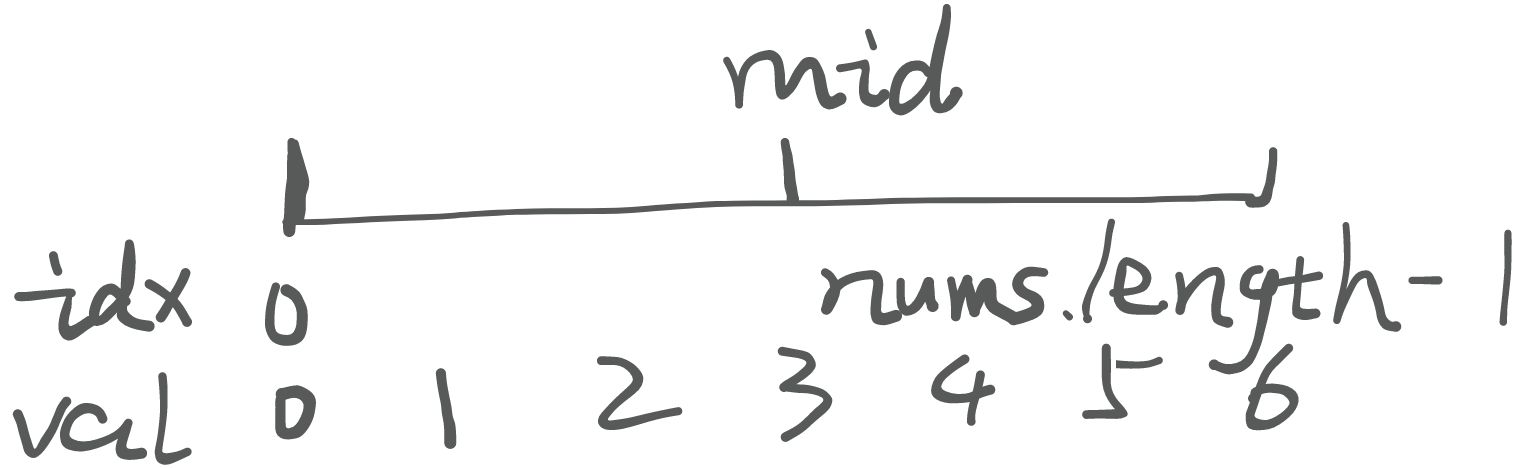 mid
idx 0 nums.length-1
val 0 1 2 3 4 5 6